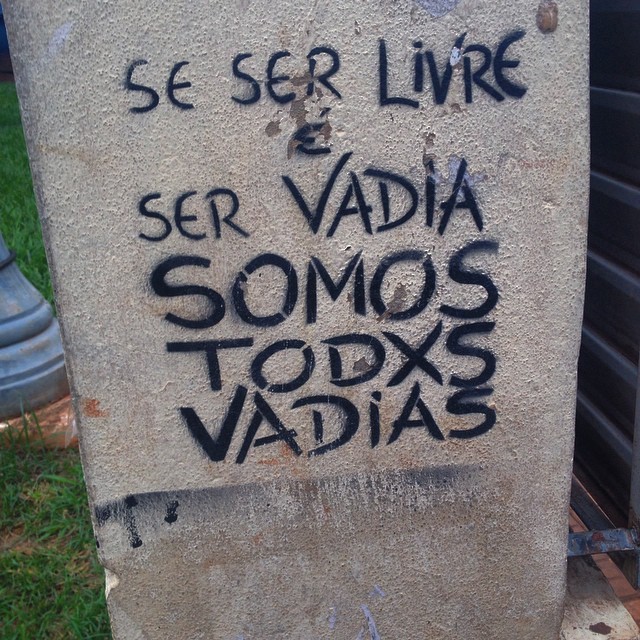 SE SER LiVRE
É
SER VADiA
SOMOS
TODXS
VADiAS